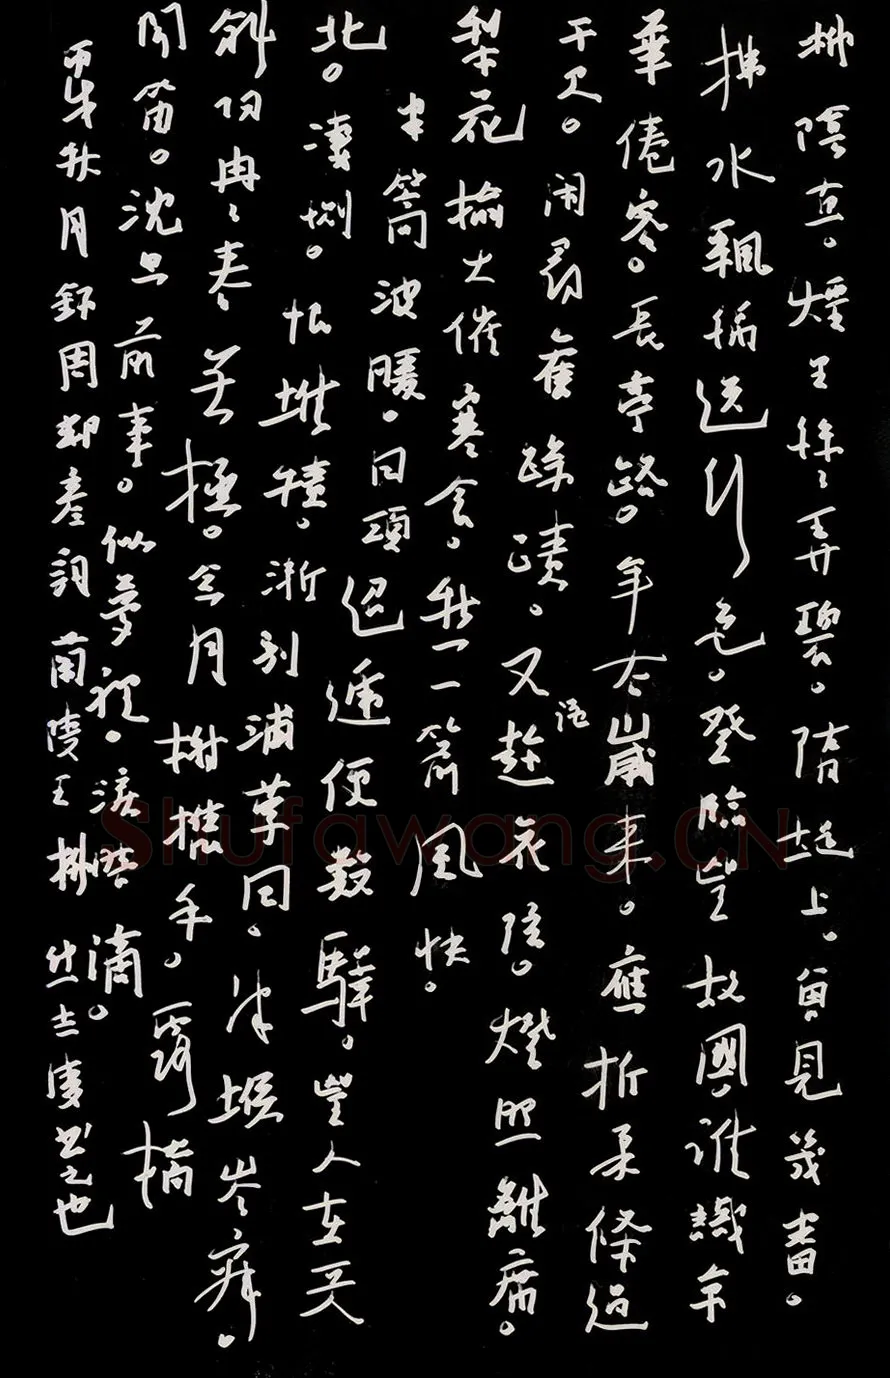 柳陰直。煙里絲〻弄碧。隋堤上。曾見幾番。
拂水飄綿送行色。登臨望故國。誰識京
華倦客。長亭路。年去歲來。應折柔條過
千尺。閑尋舊蹤跡。又酒趁哀弦。燈照離席。
梨花榆火催寒食。愁一箭風快。
半篙波暖。回頭迢遞便數驛。望人在天
北。悽惻。恨堆積。漸別浦縈回。津堠岑寂。
斜陽冉〻春無極。念月榭攜手。露橋
聞笛。沈思前事。似夢裡。淚暗滴。
秋月錄周邦彥詞蘭陵王柳書之也
Shufawang.CN